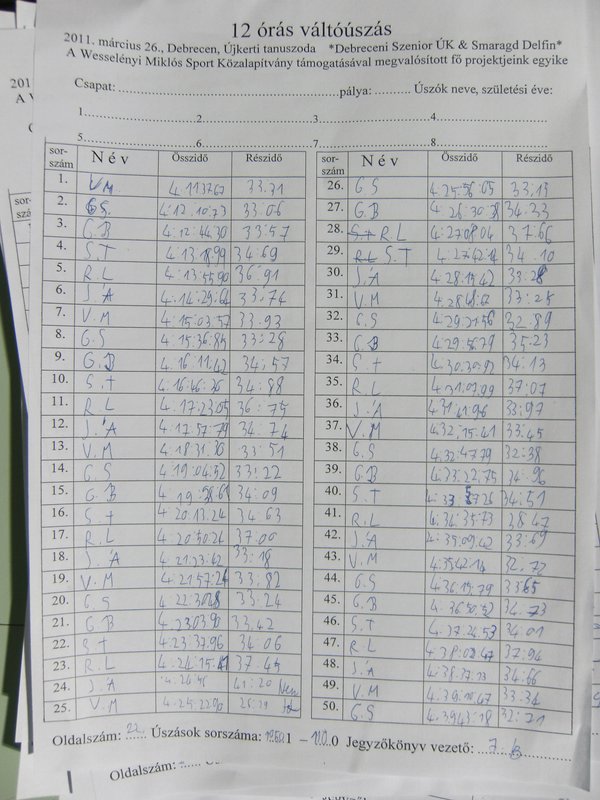 12 órás váltóúszás
2011. március 26., Debrecen, Újkerti tanuszoda *Debreceni Szenior ÚK & Smaragd Delfin*
A Wesselényi Miklós Sport Közalapítvány támogatásával megvalósított fő projektjeink egyike
Csapat: pálya: Úszók neve, születési éve:
1. 2. 3. 4.
5. 6. 7. 8.
sorszám Név Összidő Részidő sorszám Név Összidő Részidő
1. V.M 4.11.37.67 33.31 26. G.S 4:25:56:05 33:13
2. G.S. 4:12.10:73 33.06 27. G.B 4 26:30:38 34.33
3. G.B 4:12:44.30 33:57 28. R.L 4:27.08.04 37.66
4. S.T 4:13.18.99 34:69 29. S.T 34.10
5. R.L 4:13:55.90 36.91 30. J.Á 4.28.15.42 33:28
6. J.Á 4.14:29.64 33:74 31. V.M
7. V.M 4:15:03:57 33.93 32. G.S 32:89
8. G.S 4:15.36:85 33:28 33. G.B 4:29.56.79 35:23
9. G.B 4.16:11.42 34:57 34. S.t 34:13
10. S.t 34:88 35. R.L 37:07
11. R.L 4.17:23.05 36:75 36. J.Á 33:97
12. J.Á 4.17:57:79 34:74 37. V.M 4.32:15.41 33:45
13. V.M 4.18:31:30 33:51 38. G.S 4:32:47.79 32:38
14. G.S 4:19:04:52 33:22 39. G.B 4:33:22.75 34:96
15. G.B 34:09 40. S.T 34:51
16. S.t 4:20.13.24 34:63 41. R.L 4:34:35:73 38.47
17. R.L 4:20:50:24 37.00 42. J.Á 4:35:09.42 33:69
18. J.Á 4:21:23.42 33:18 43. V.M 4:35:42:14 32.72
19. V.M 4:21:57:24 33:82 44. G.S 4:36:15.79 33:65
20. G.S 33:24 45. G.B 4:36:50:52 34.73
21. G.B 33.42 46. S.T 4.37.24.53 34:01
22. S.t 4:23:37.96 34:06 47. R.L 37:94
23. R.L 4:24:15.41 37:45 48. J.Á 34:66
24. J.Á 41:20 49. V.M 33:34
25. V.M 50. G.S 4.39:43:18 32:71
Oldalszám: 22. Úszások sorszáma: 1 – 0 Jegyzőkönyv vezető:
Oldalszám: